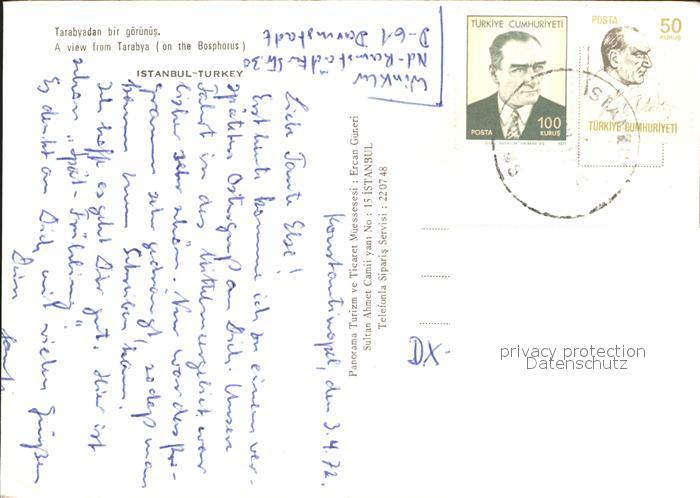 Tarabyadan bir görünüş.
A view from Tarabya (on the Bosphorus)
ISTANBUL-TURKEY
Winkler
Nd-Ramstädter Str. 30
D-61 Darmstadt
TÜRKİYE CUMHURİYETİ
POSTA
100
KURUŞ
POSTA
50
KURUŞ
TÜRKİYE CUMHURİYETİ
Panorama Turizm ve Ticaret Muessesesi : Ercan Güneri
Sultan Ahmet Camii yanı No : 15 İSTANBUL
Telefonla Sipariş Servisi : 22 07 48
Konstantinopel, den 3.4.72.
Liebe Tante Else!
Erst heute komme ich zu einem ver-
späteten Ostergruß an Dich. Unsere
Fahrt in das Mittelmeergebiet war
bisher sehr schön. Nur war das Pro-
gramm sehr gedrängt, so daß man
kaum zum Schreiben kam.
Ich hoffe es geht Dir gut. Hier ist
schon "Spät-Frühling"
Es denkt an Dich mit vielen Grüßen
Dein
privacy protection
Datenschutz